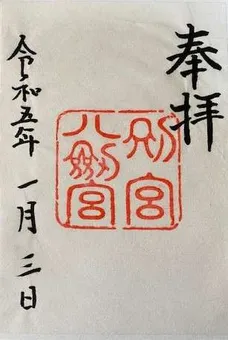 奉拝
別宮
八剱宮
令和五年 一月 三日